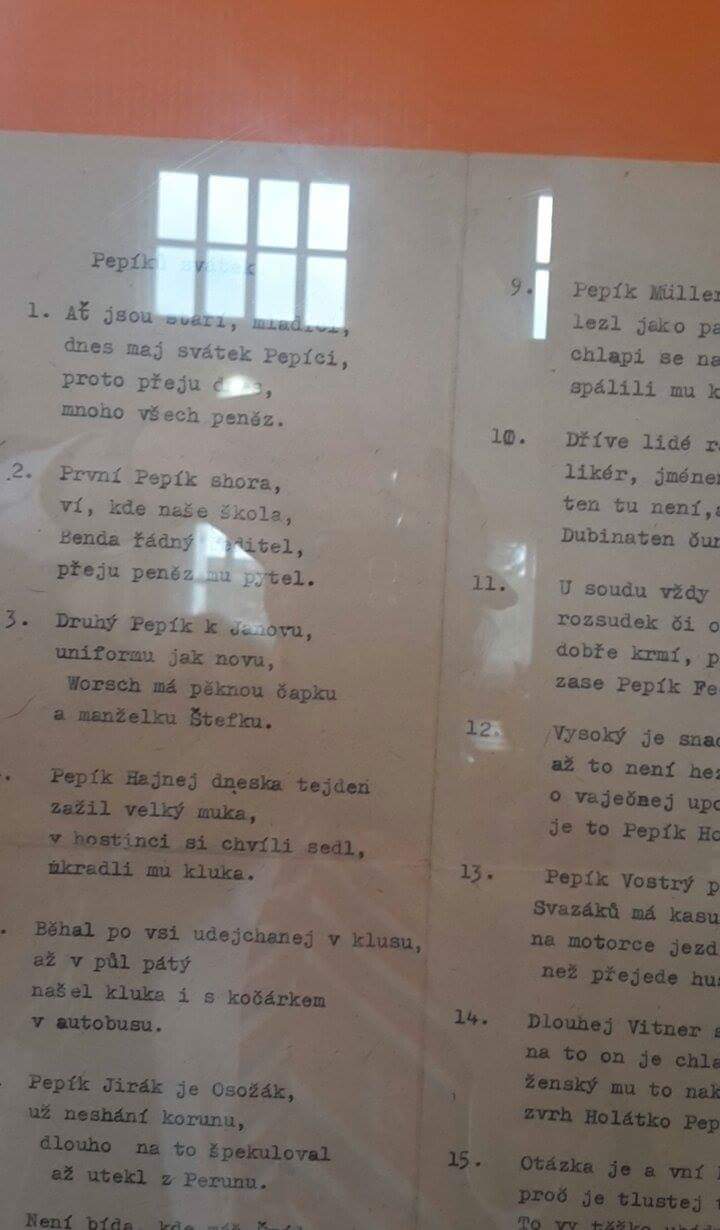 Pepíků svátek
1. Ať jsou staří, mladící,
dnes maj svátek Pepíci,
proto přeju dnes,
mnoho všech peněz.
2. První Pepík shora,
ví, kde naše škola,
Benda řádný ředitel,
přeju peněz mu pytel.
3. Druhý Pepík k Janovu,
uniformu jak novu,
Worsch má pěknou čapku
a manželku Štefku.
Pepík Hajnej dneska tejden
zažil velký muka,
v hostinci si chvíli sedl,
ukradli mu kluka.
Běhal po vsi udejchanej v klusu,
až v půl pátý
našel kluka i s kočárkem
v autobusu.
Pepík Jirák je Osožák,
už neshání korunu,
dlouho na to špekuloval
až utekl z Perunu.
Není bída, kde
9. Pepík Müller
lezl jako
chlapi se
spálili mu
10. Dříve lidé
likér,
ten tu není,
Dubinaten
11. U soudu vždy
rozsudek či
dobře krmí,
zase Pepík
12. Vysoký je
až to není
o vaječnej
je to Pepík
13. Pepík Vostrý
Svazáků má
na motorce
než přejede
14. Dlouhej Vitner
na to on je
ženský mu to
zvrh Holátko
15. Otázka je a vní
proč je tlustej
To vy těžko